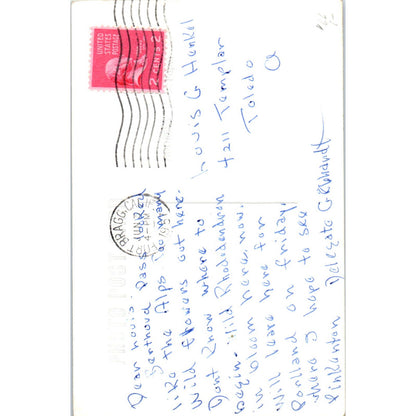 UNITED STATES POSTAGE
2 CENTS 2
FORT BRAGG, CALIF.
JUN
4-PM
Louis G Henkel
4211 Templar
Toledo
O
Dear Louis. Pass
Berthoud
like the Alps. So many
Wild flowers out here.
Dont Know where to
begin. Wild Rhododendron
in bloom here now.
Will leave here for
Portland on friday
where I hope to see
Delegate Gebhardt